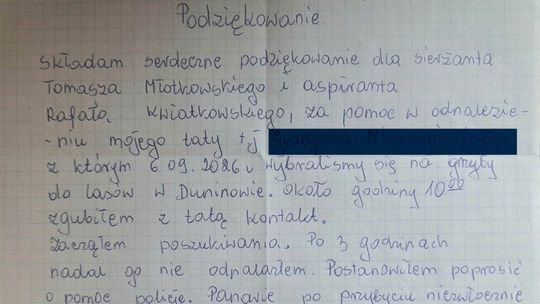 Podziękowanie.
Składam serdeczne podziękowanie dla sierżanta
Tomasza Młotkowskiego i aspiranta
Rafała Kwiatkowskiego, za pomoc w odnalezie-
-niu mojego taty tj
z którym 6.09.2026r wybraliśmy się na grzyby
do lasów w Duninowie. Około godziny 10⁰⁰
zgubiłem z tatą kontakt.
Zacząłem poszukiwania. Po 3 godzinach
nadal go nie odnalazłem. Postanowiłem poprosić
o pomoc policję. Panowie po przybyciu niezwłocznie